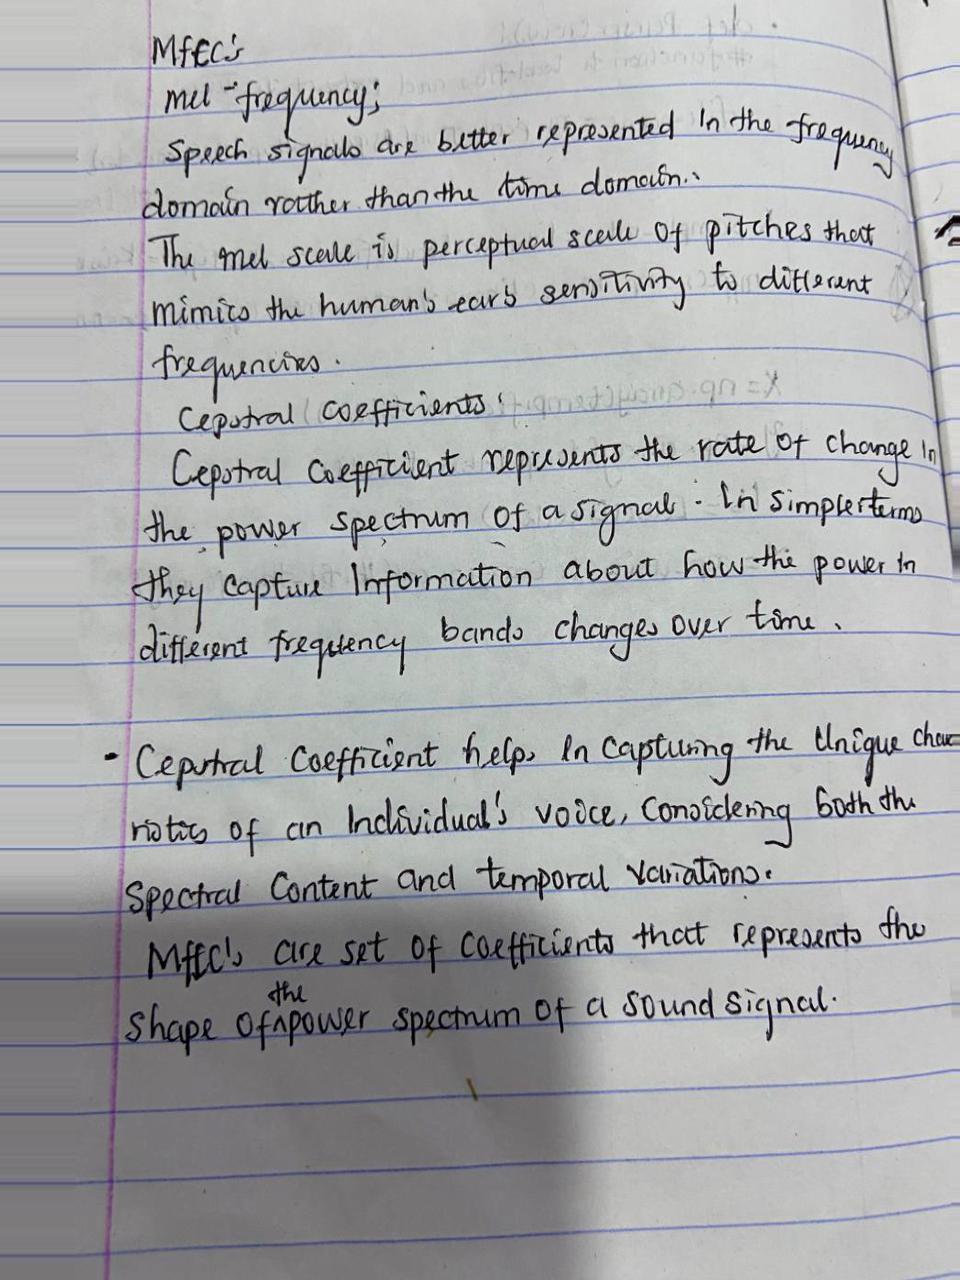 Mfcc's
mel - frequency;
Speech signals are better represented in the frequency
domain rather than the time domain.
The mel scale is perceptual scale of pitches that
mimics the human's ear's sensitivity to different
frequencies.
Cepstral coefficients:
Cepstral Coefficient represents the rate of change in
the power spectrum of a signal. In simpler terms
they capture Information about how the power in
different frequency bands changes over time.
• Cepstral Coefficient helps In Capturing the Unique charac
ristics of an Individual's voice, Considering both the
Spectral Content and temporal variations.
Mfcc's are set of coefficients that represents the
the
shape of power spectrum of a sound signal.